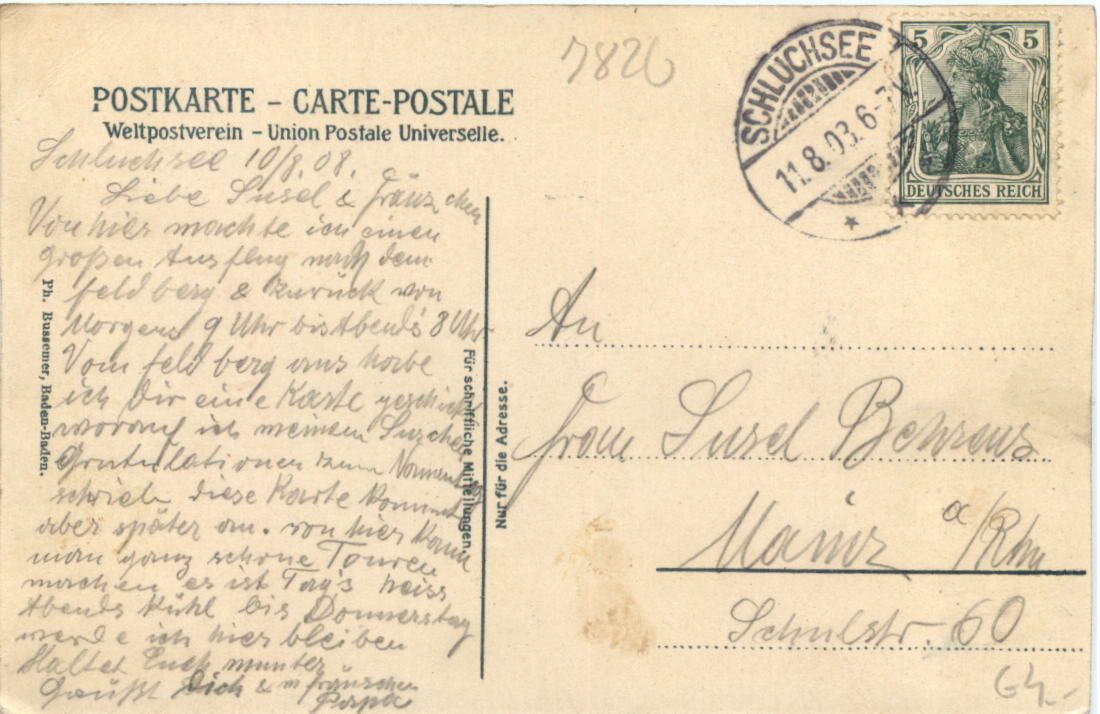 7826
SCHLUCHSEE
11.8.03.6-7
5 5
DEUTSCHES REICH
POSTKARTE – CARTE-POSTALE
Weltpostverein – Union Postale Universelle.
Schluchsee 10/8.08.
Liebe Susel & Fränzchen
Von hier machte ich einen
großen Ausflug nach dem
Feldberg & zurück von
Morgens 9 Uhr bis Abends 8 Uhr
Vom Feldberg aus habe
ich Dir eine Karte geschickt
worauf ich meinem Suzchen
Gratulationen zum
schrieb diese Karte kommt
aber später an. von hier kann
man ganz schöne Touren
machen es ist Tag's heiss
Abends kühl bis Donnerstag
werde ich hier bleiben
Haltet Euch munter
Grüßt Dich & m Fränzchen
Papa
Ph. Bussemer, Baden-Baden.
Für schriftliche Mitteilungen.
Nur für die Adresse.
An
Frau Susel Behrens
Mainz a/Rhn
Schulstr. 60